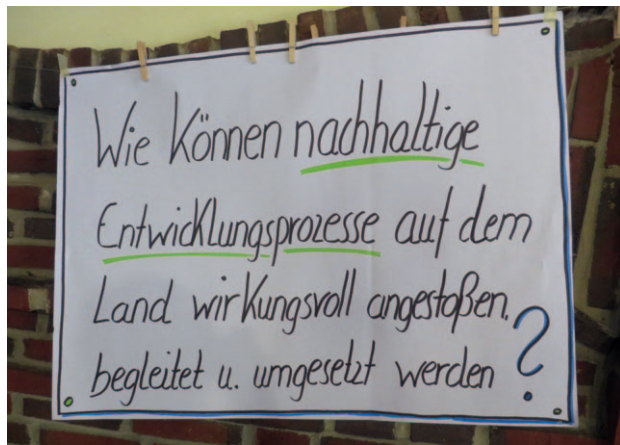 Wie können nachhaltige
Entwicklungsprozesse auf dem
Land wirkungsvoll angestoßen,
begleitet u. umgesetzt werden ?